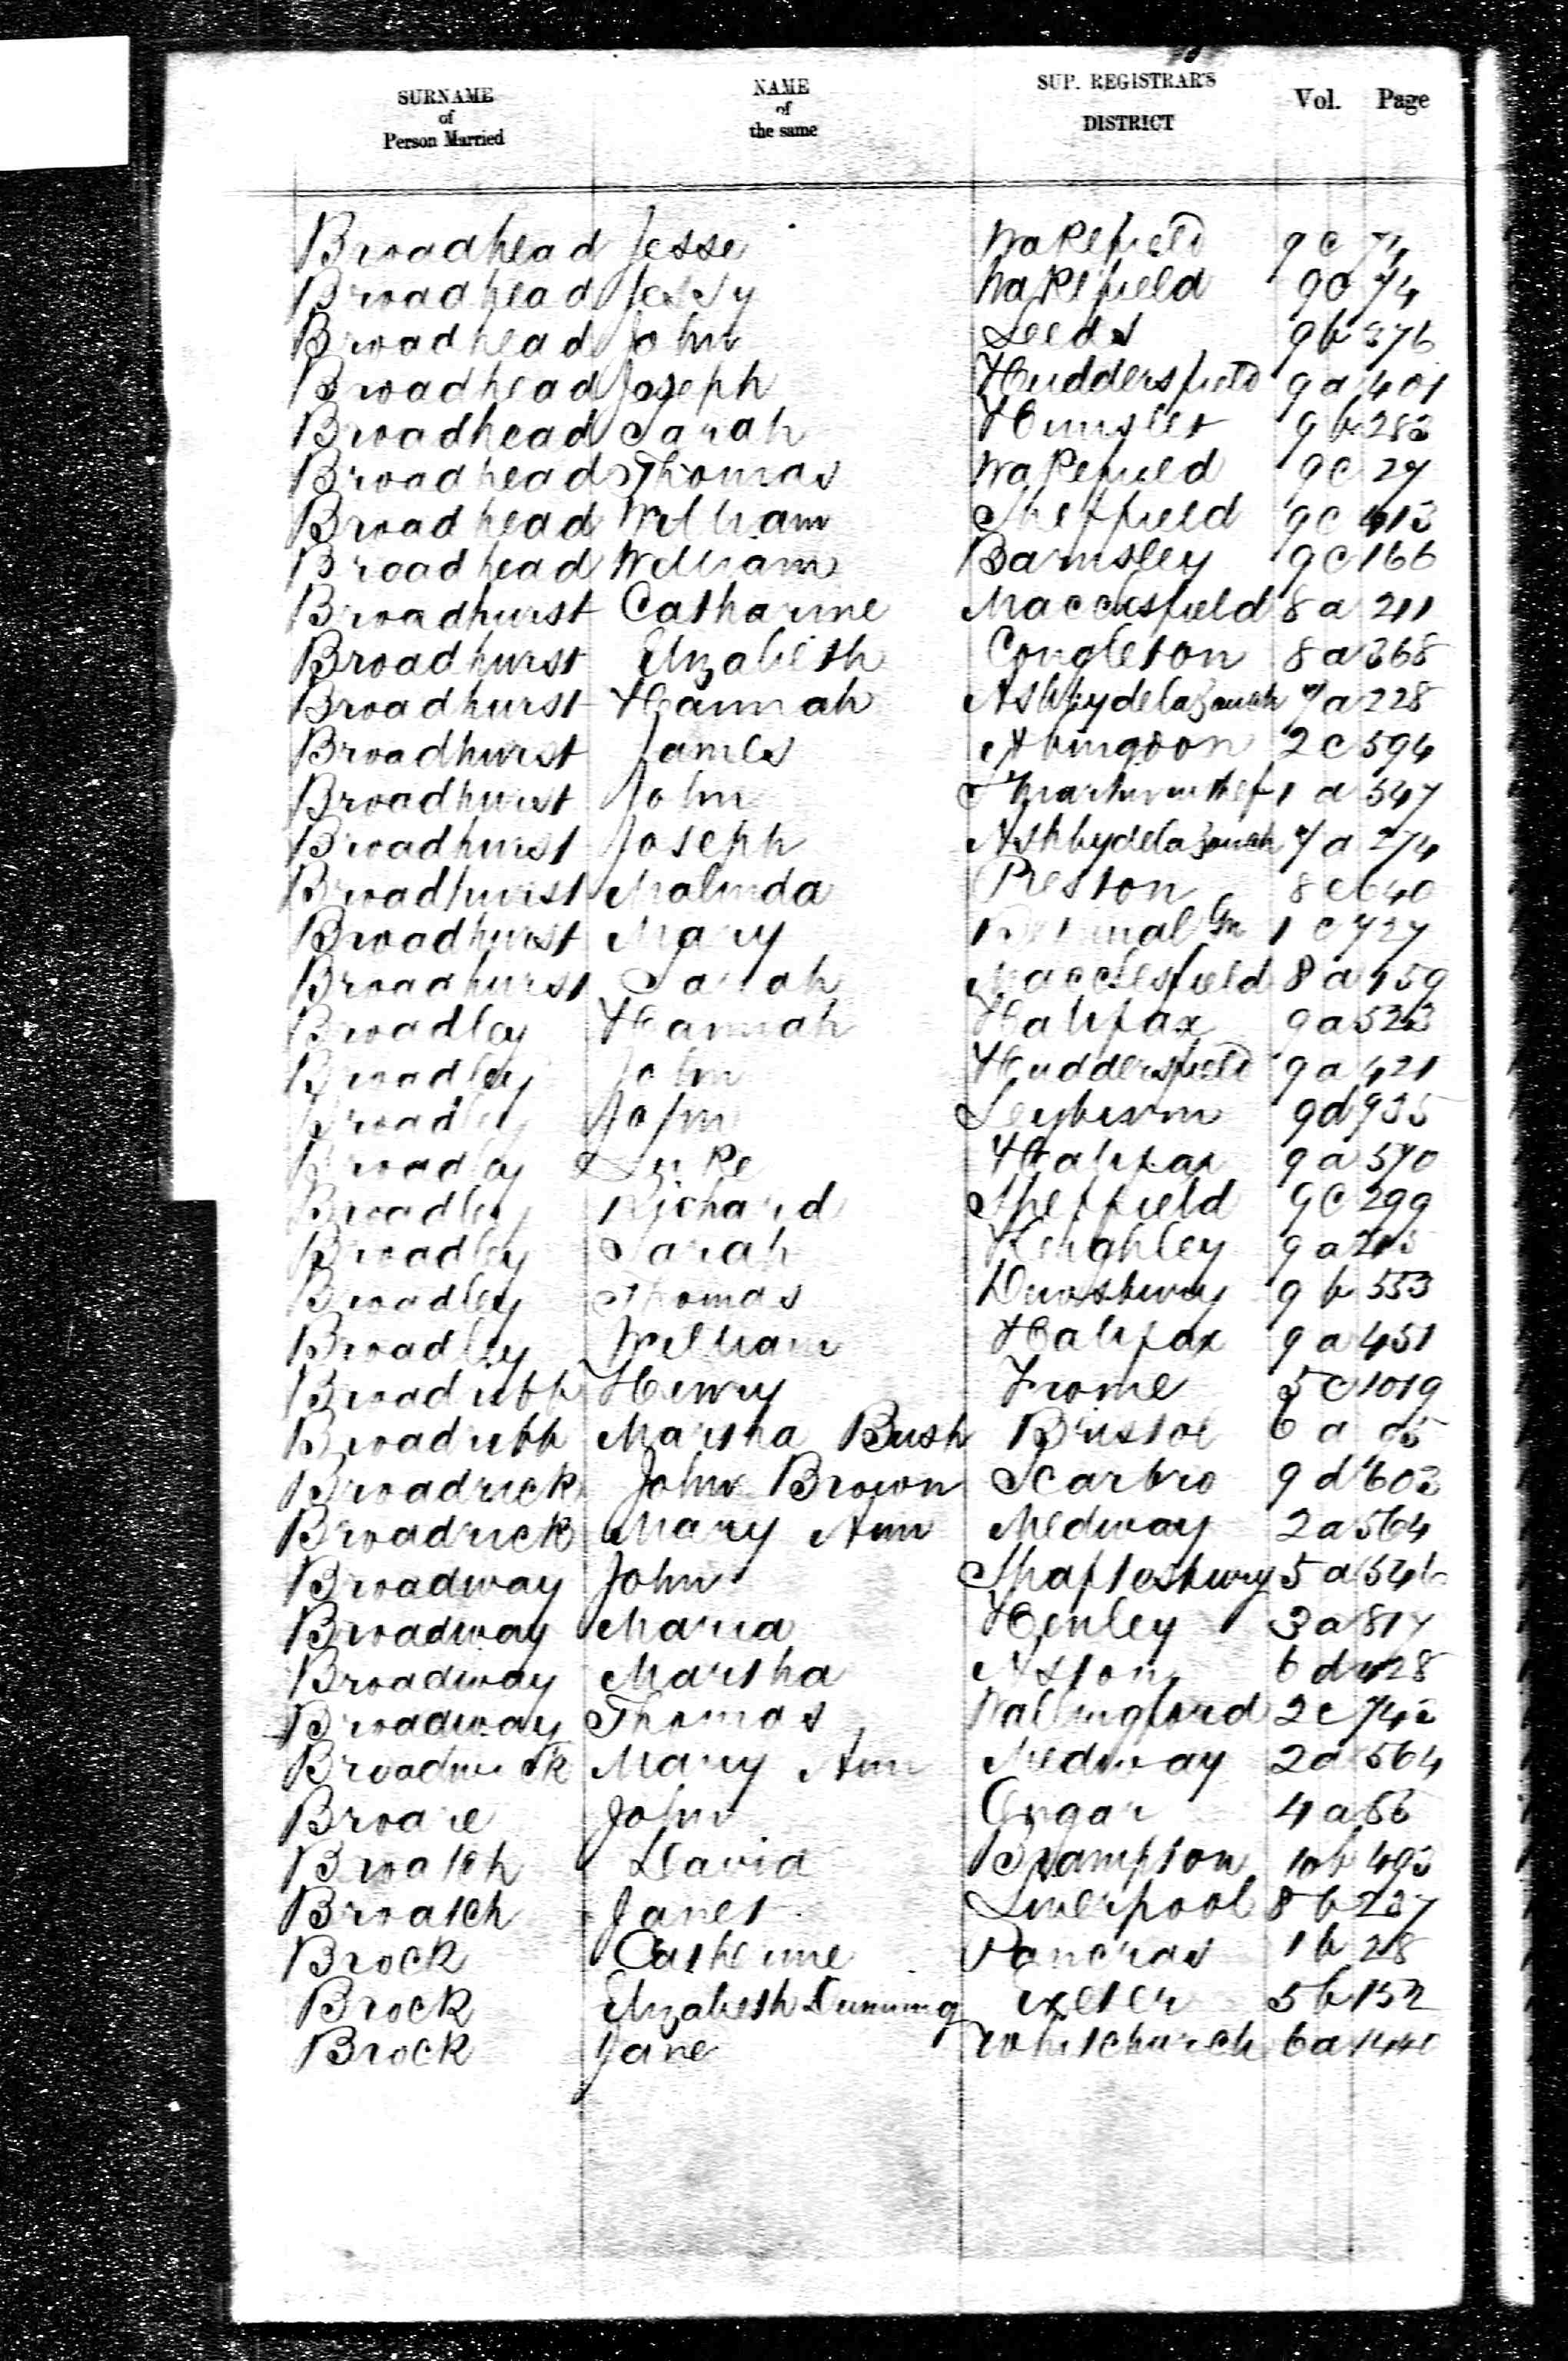 SURNAME of Person Married NAME of the same SUP. REGISTRAR'S DISTRICT Vol. Page
Broadhead Jesse Wakefield 9c 74
Broadhead Jessy Wakefield 9c 74
Broadhead John Leeds 9b 376
Broadhead Joseph Huddersfield 9a 401
Broadhead Sarah Hunslet 9b 283
Broadhead Thomas Wakefield 9c 27
Broadhead William Sheffield 9c 413
Broadhead William Barnsley 9c 166
Broadhurst Catharine Macclesfield 8a 211
Broadhurst Elizabeth Congleton 8a 368
Broadhurst Hannah Ashbydelazouch 7a 228
Broadhurst James Abingdon 2c 594
Broadhurst John 1a 547
Broadhurst Joseph Ashbydelazouch 7a 274
Broadhurst Malinda Preston 8e 640
Broadhurst Mary Bethnal Gn 1c 727
Broadhurst Sarah Macclesfield 8a 159
Broadley Hannah Halifax 9a 523
Broadley John Huddersfield 9a 421
Broadley John Leyburn 9d 935
Broadley Luke Halifax 9a 570
Broadley Richard Sheffield 9c 299
Broadley Sarah Keighley 9a
Broadley Thomas Dewsbury 9b 553
Broadley William Halifax 9a 451
Broadribb Henry Frome 5c 1019
Broadribb Martha Bush Bristol 6a
Broadrick John Brown Scarbro 9d 603
Broadrick Mary Ann Medway 2a 564
Broadway John Shaftesbury 5a 546
Broadway Maria Henley 3a 817
Broadway Martha Aston 6d 428
Broadway Thomas Wallingford 2c
Broadwick Mary Ann Medway 2a 564
Broare John Ongar 4a
Broatch David Brampton 10b 493
Broatch Janet Liverpool 8b 237
Brock Catherine Pancras 1b 28
Brock Elizabeth Dunning Exeter 5b 152
Brock Jane Whitchurch 6a